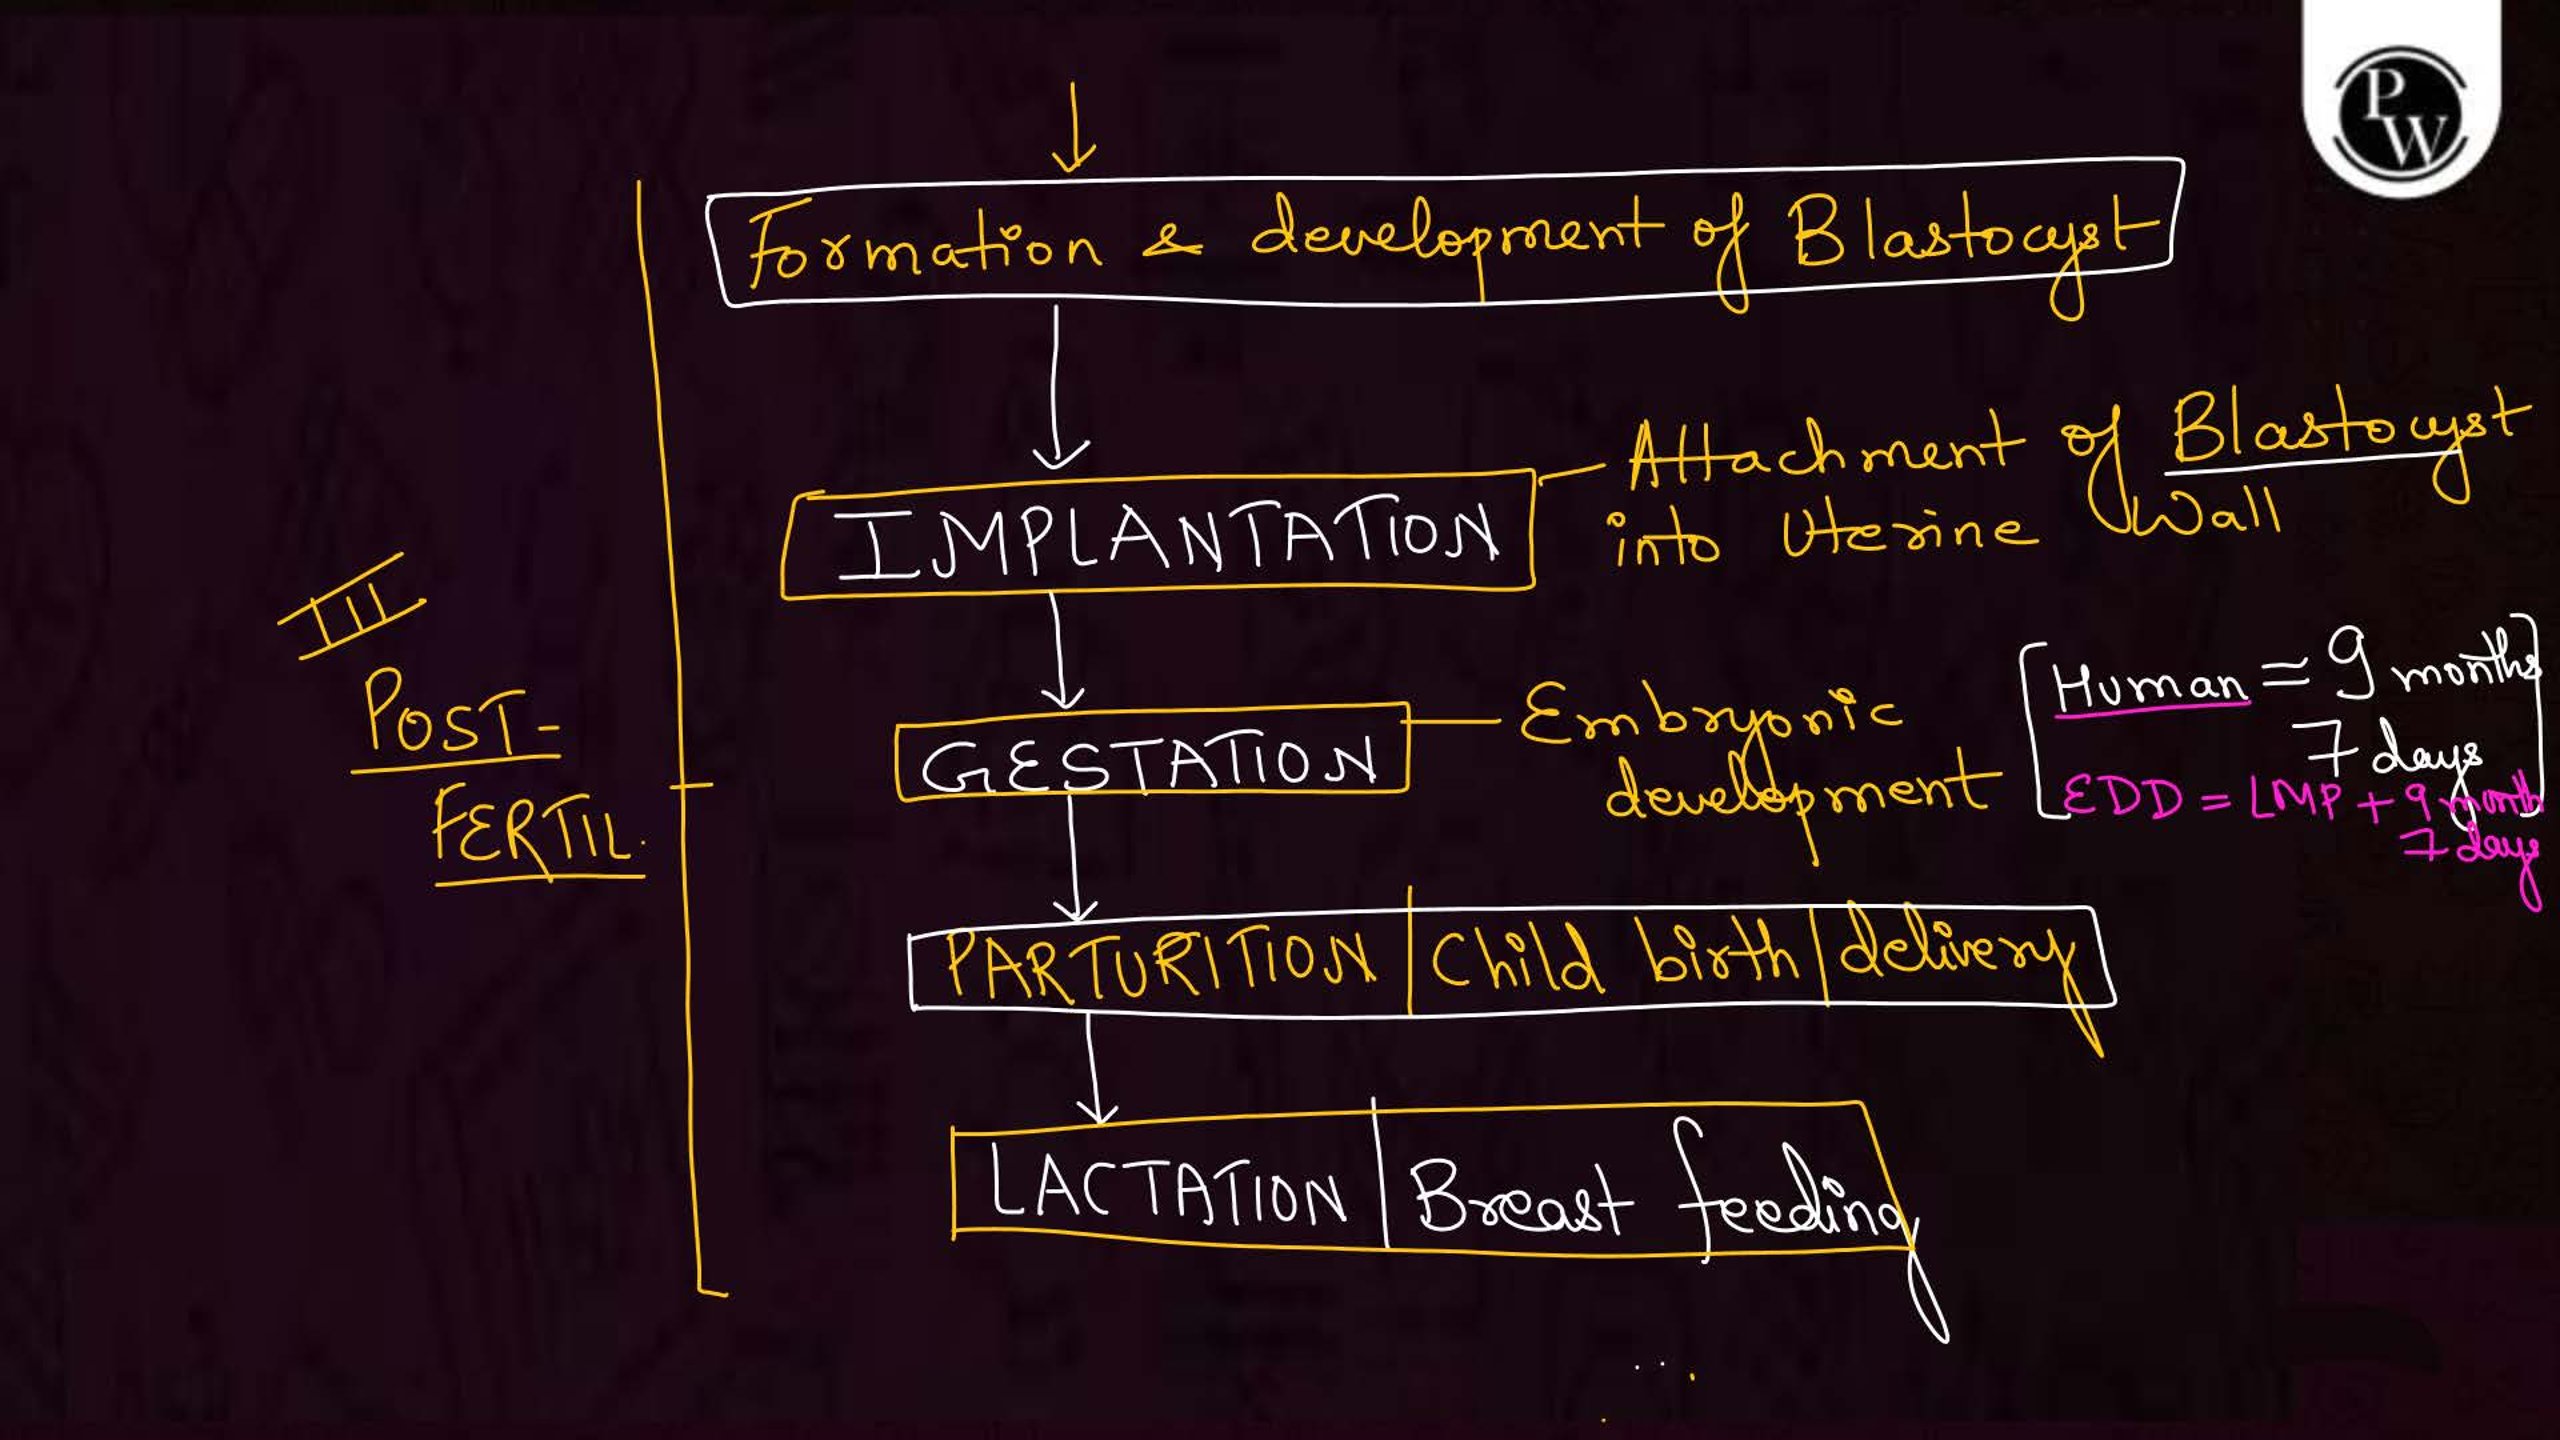 PW
Formation & development of Blastocyst
IMPLANTATION
Attachment of Blastocyst
into Uterine Wall
III
POST-
FERTIL.
GESTATION
Embryonic
development
Human = 9 months
7 days
EDD = LMP + 9 month
7 days
PARTURITION | Child birth | delivery
LACTATION | Breast feeding